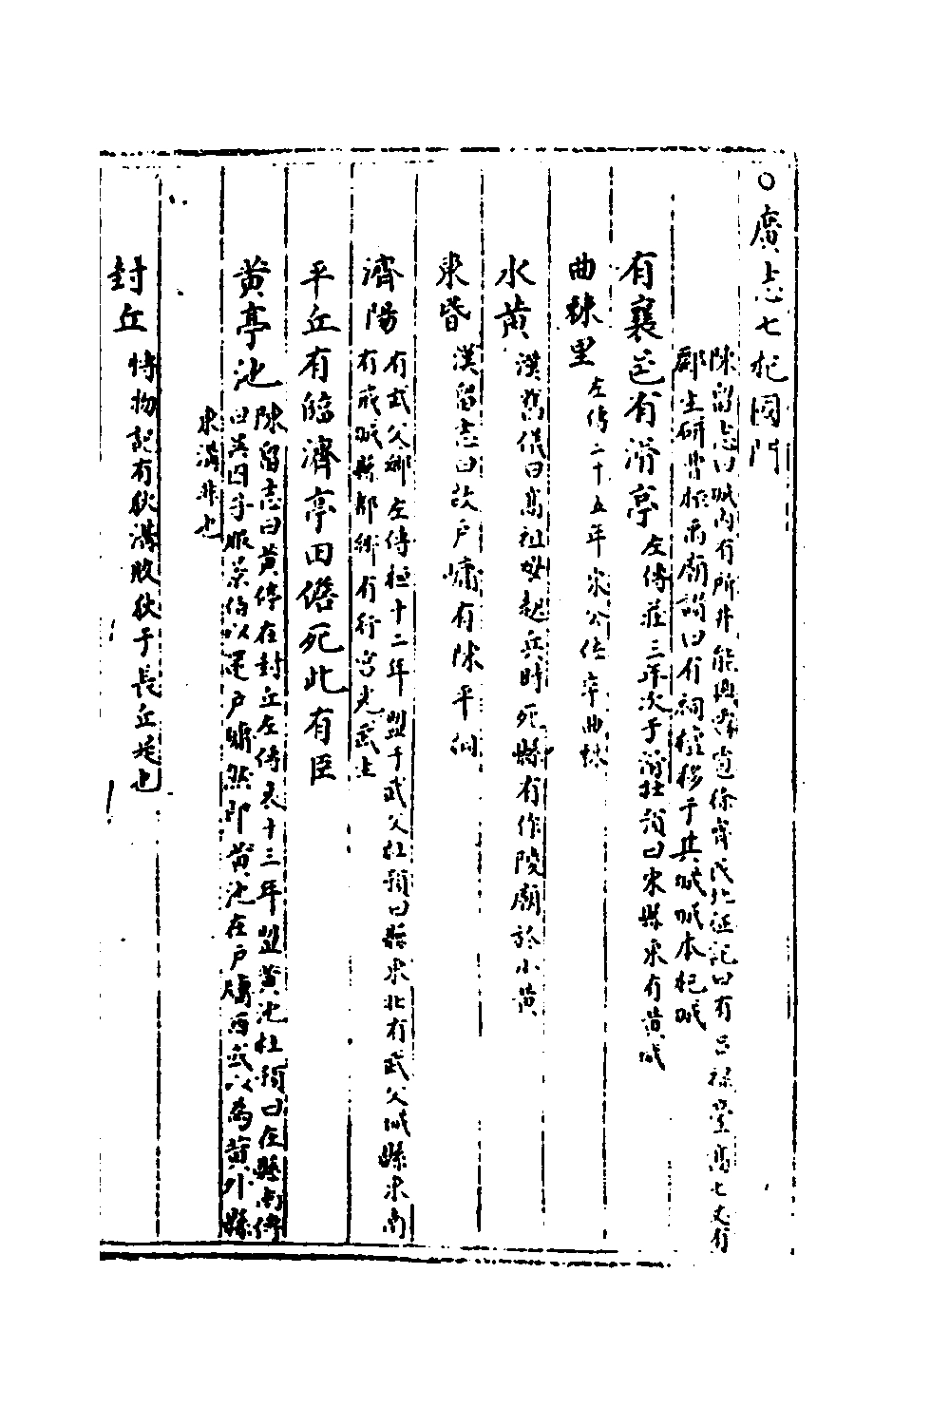 ○廣志七杞國門
陳留志曰城內有所井能興霧
徐齊民北征記曰有呂祿臺高七丈有
郡生研
禹廟
曰有祠
移于其城城本杞城
有襄邑有滑亭
左傳莊三年次于滑杜預曰宋縣東有黃城
曲棘里
左傳二十五年宋公佐卒曲棘
水黃
漢舊儀曰高祖母起兵時死縣有作陵廟於小黃
東昏
漢留志曰故戶牖有陳平祠
濟陽
有武父鄉左傳桓十二年盟于武父杜預曰縣東北有武父城縣東南
有戎城縣都鄉有行宮光武生
平丘有臨濟亭田儋死此有臣
黃亭池
陳留志曰黃停在封丘左傳哀十三年盟黃池杜預曰在縣南傳
曰吳囚子服景伯以還戶牖然即黃池在戶牖西或以為黃外縣
東溝非也
封丘
博物記有狄溝敗狄于長丘是也